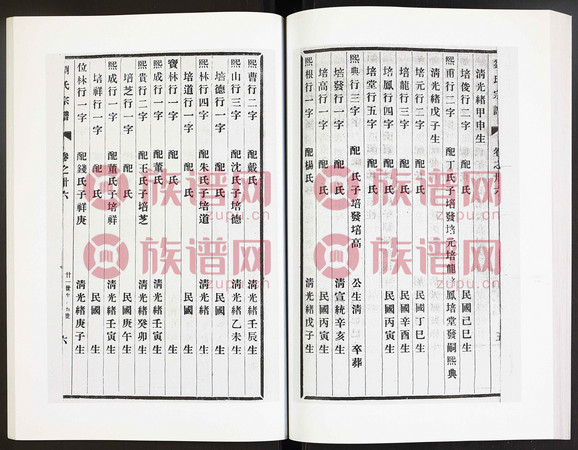 劉氏宗譜 卷之卅六 五
清光緒甲申生
培俊行二字 配 氏 民國己巳生
熙甫行二字 配丁氏子培發培元培龍 鳳培堂發嗣熙典
清光緒戊子生
培元行二字 配 氏 民國丁巳生
培龍行三字 配 氏 民國辛酉生
培鳳行四字 配 氏 民國丙寅生
培堂行五字 配 氏
熙典行三字 配 氏子培發培高 公生清 卒葬
培發行一字 配 氏 清宣統辛亥生
培高行一字 配 氏 民國丙寅生
熙根行一字 配楊氏 清光緒戊子生
熙曹行二字 配戴氏 清光緒壬辰生
熙山行三字 配沈氏子培德 清光緒乙未生
培德行一字 配 氏 民國 生
熙林行四字 配朱氏子培道 清光緒 生
培道行一字 配 氏 民國 生
寶林行一字 配 氏 生
熙成行一字 配董氏 清光緒壬寅生
熙貴行二字 配王氏子培芝 清光緒癸卯生
培芝行一字 配 氏 民國庚午生
熙成行一字 配董氏子培祥 清光緒壬寅生
培祥行一字 配 氏 民國 生
位林行一字 配錢氏子祥庚 清光緒庚子生
劉氏宗譜 卷之卅六 六
族谱网
zupu.cn
族谱网
zupu.cn
族谱网
zupu.cn
族谱网
zupu.cn